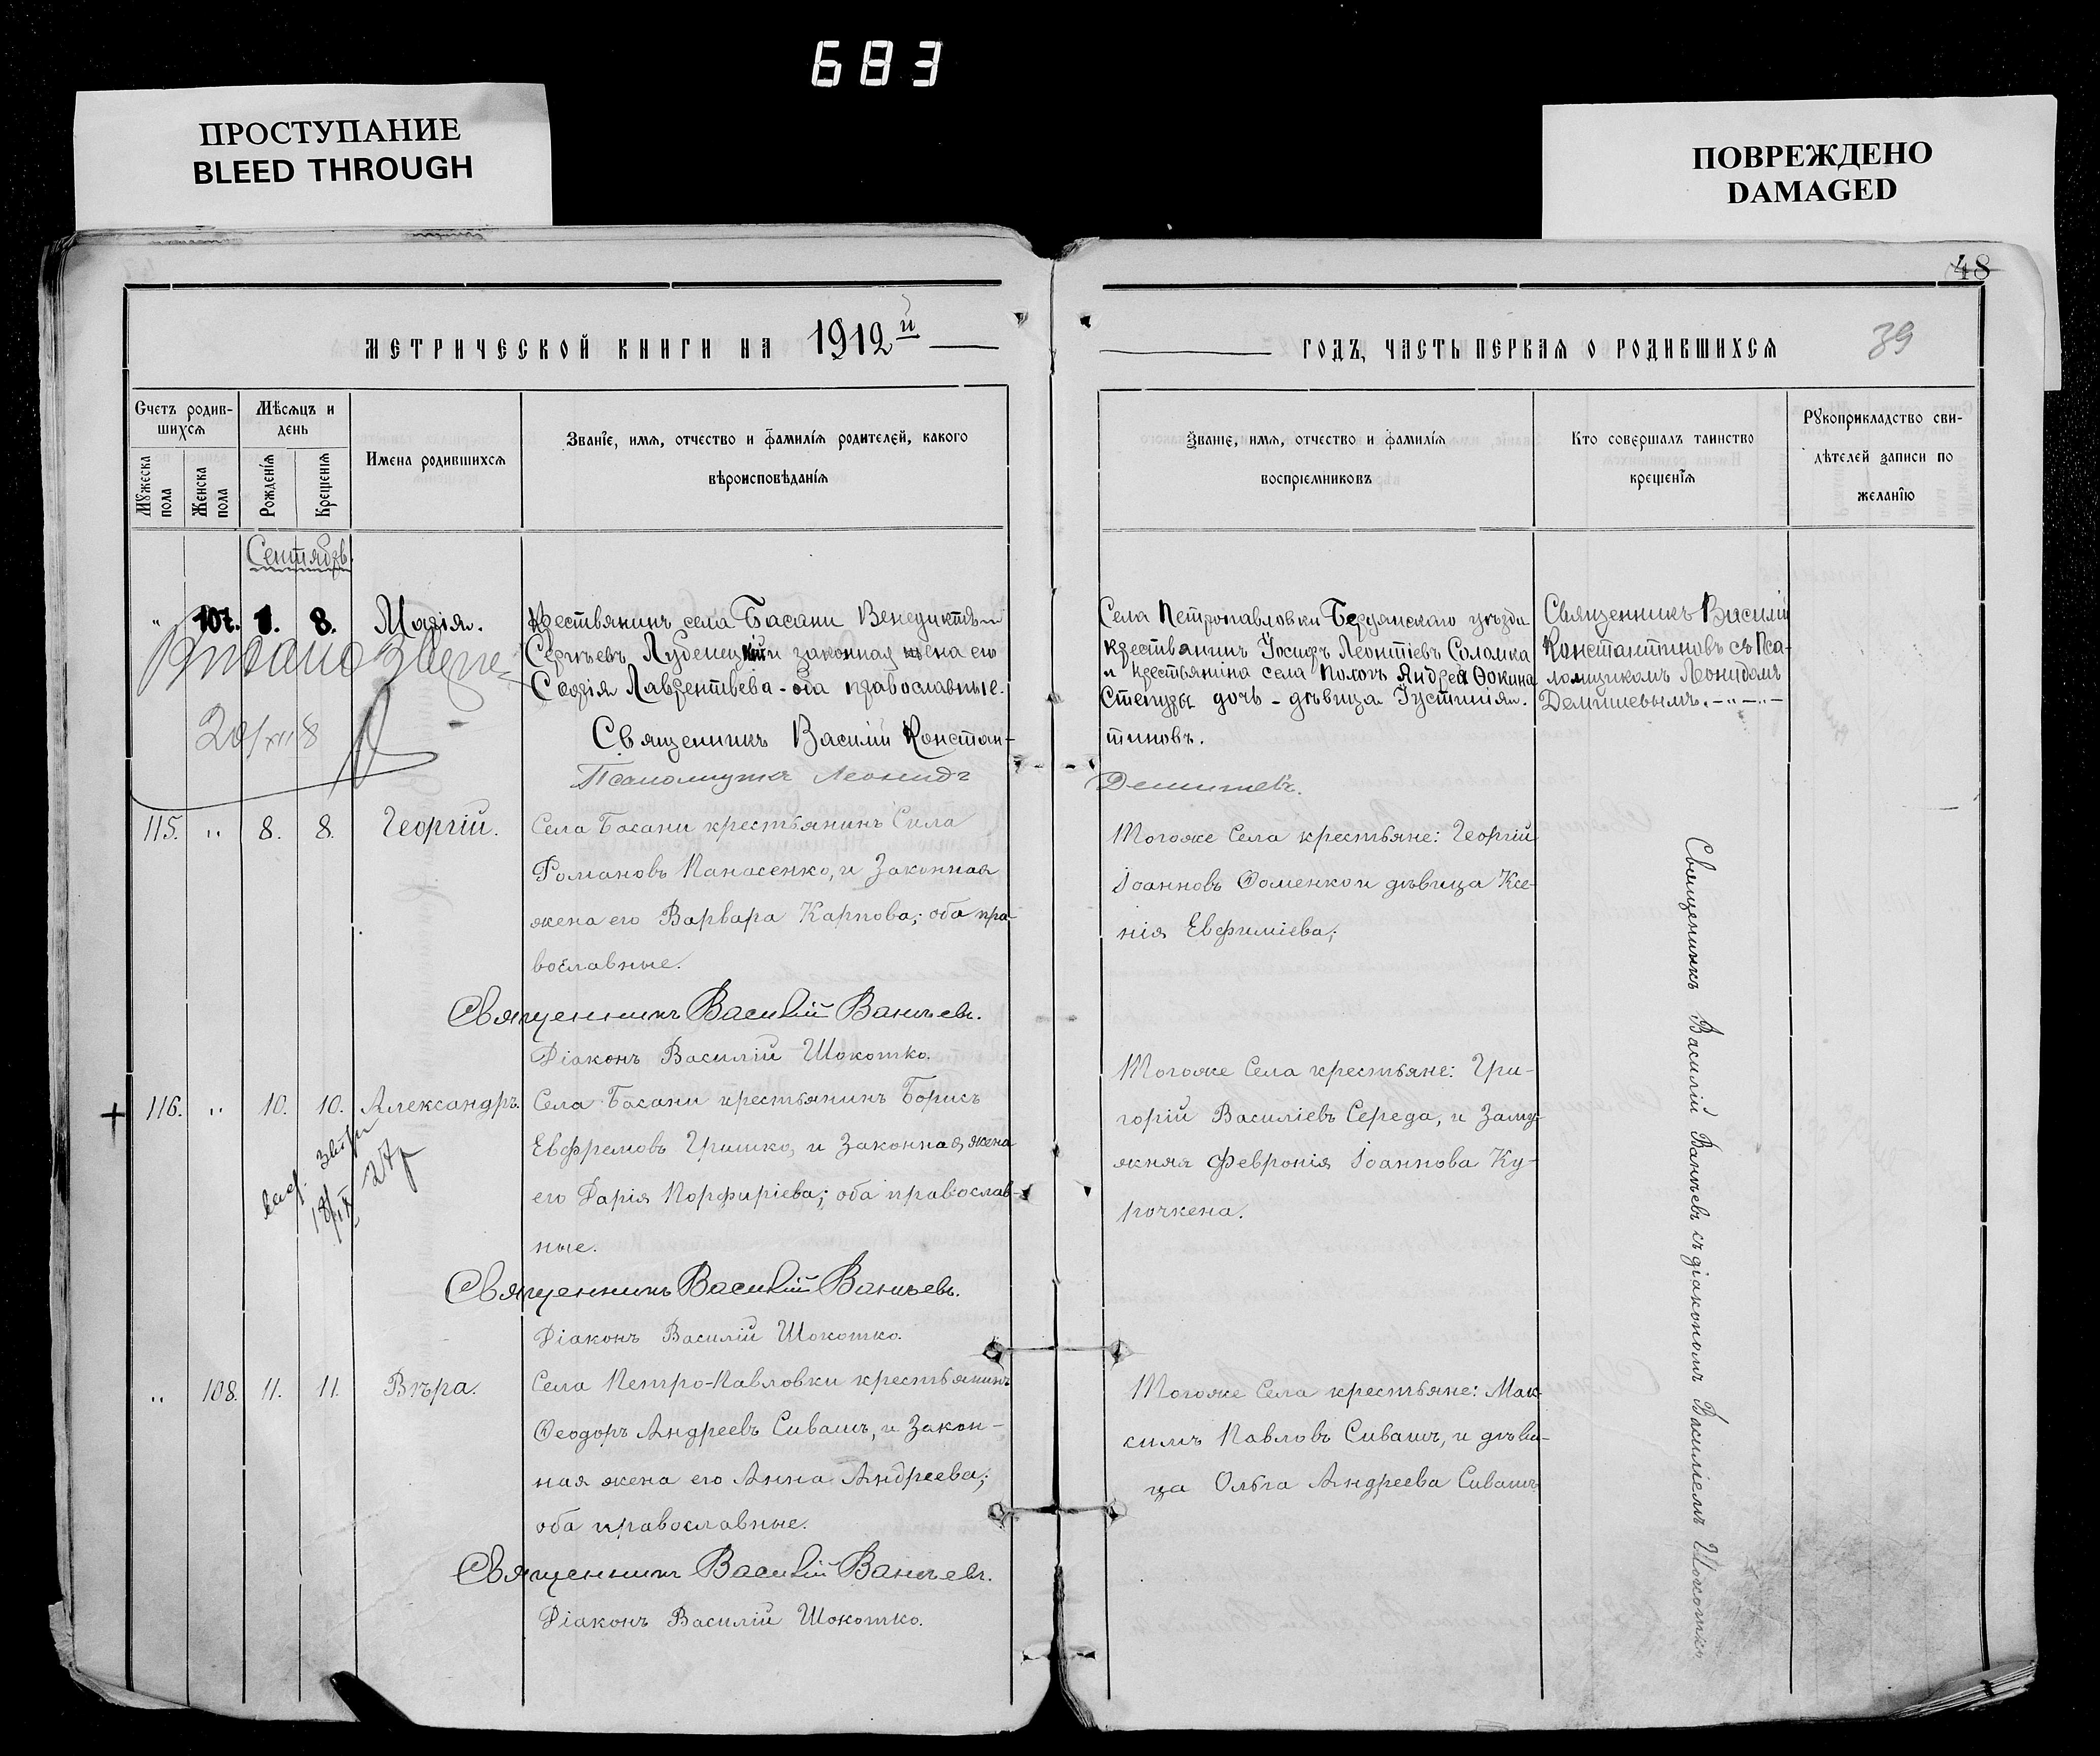 683
ПРОСТУПАНИЕ
BLEED THROUGH
ПОВРЕЖДЕНО
DAMAGED
48
39
МЕТРИЧЕСКОЙ КНИГИ НА 1912й
ГОДЪ, ЧАСТЬ ПЕРВАЯ О РОДИВШИХСЯ
Счетъ родив-
шихся
Мѣсяцъ и
день
Мужеска пола
Женска пола
Рожденія
Крещенія
Имена родившихся
Званіе, имя, отчество и фамилія родителей, какого
вѣроисповѣданія
Званіе, имя, отчество и фамилія
воспріемниковъ
Кто совершалъ таинство
крещенія
Рукоприкладство сви-
дѣтелей записи по
желанію
Сентябрь.
„ 107. 1. 8. Марія.
Крестьянинъ села Басани Венедиктъ
Сергѣевъ Лубенецкій и законная жена его
Софія Лаврентьева - оба православные.
Священникъ Василій Констан-
тиновъ.
Псаломщикъ Леонидъ
Демишевъ.
Села Петропавловки Бердянскаго уѣзда
крестьянинъ Іосифъ Леонтіевъ Соломка
и крестьянина села Пологъ Андрея Ѳокина
Стегуры дочь - дѣвица Іустинія.
Священникъ Василій
Константиновъ съ Пса-
ломщикомъ Леонидомъ
Демишевымъ. - „ - „ -
20/XII 8
115. „ 8. 8. Георгій.
Села Басани крестьянинъ Сила
Романовъ Панасенко, и законная
жена его Варвара Карпова; оба пра-
вославные.
Священникъ Василій Ванчьевъ.
Діаконъ Василій Шокотко.
Тогоже Села крестьяне: Георгій
Іоанновъ Ѳоменко и дѣвица Ксе-
нія Евфиміева;
116. „ 10. 10. Александръ.
Села Басани крестьянинъ Борисъ
Евфремовъ Гришко, и Законная жена
его Дарія Порфиріева; оба православ-
ные.
Священникъ Василій Ванчьевъ.
Діаконъ Василій Шокотко.
Тогоже Села крестьяне: Гри-
горій Василіевъ Середа, и Заму-
жняя Февронія Іоаннова Ку-
рочкена.
18/IX 27
„ 108. 11. 11. Вѣра.
Села Петро-Павловки крестьянинъ
Ѳеодоръ Андреевъ Сивашъ, и Закон-
ная жена его Анна Андреева;
оба православные.
Священникъ Василій Ванчьевъ.
Діаконъ Василій Шокотко.
Тогоже Села крестьяне: Мак-
симъ Павловъ Сивашъ, и дѣви-
ца Ольга Андреева Сивашъ
Священникъ Василій Ванчьевъ съ діакономъ Василіемъ Шокотко